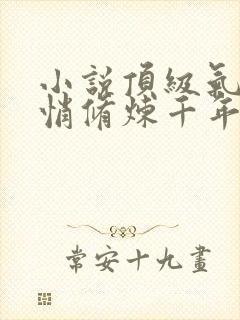 小說頂級氣
悄脩煉千年
常安十九畫